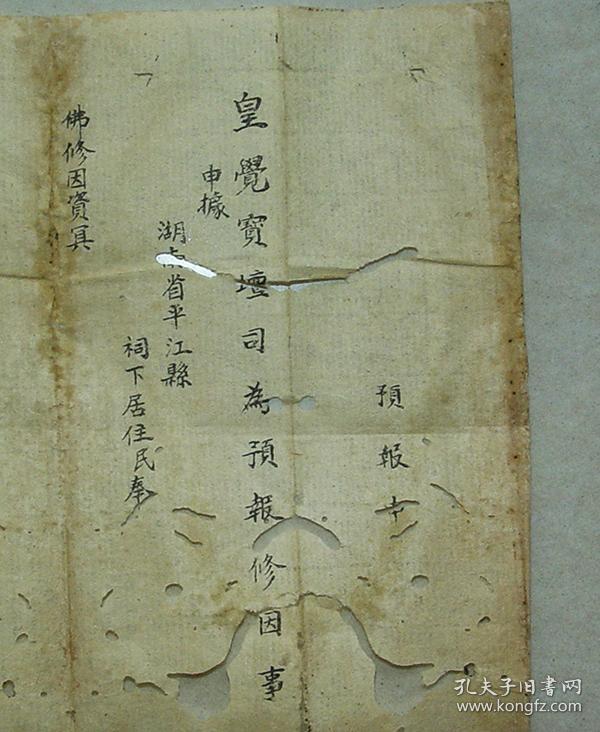 預報
皇覺寳壇司為預報修因事
申據
湖南省平江縣
祠下居住民奉
佛修因資冥
孔夫子旧書网
www.kongfz.com